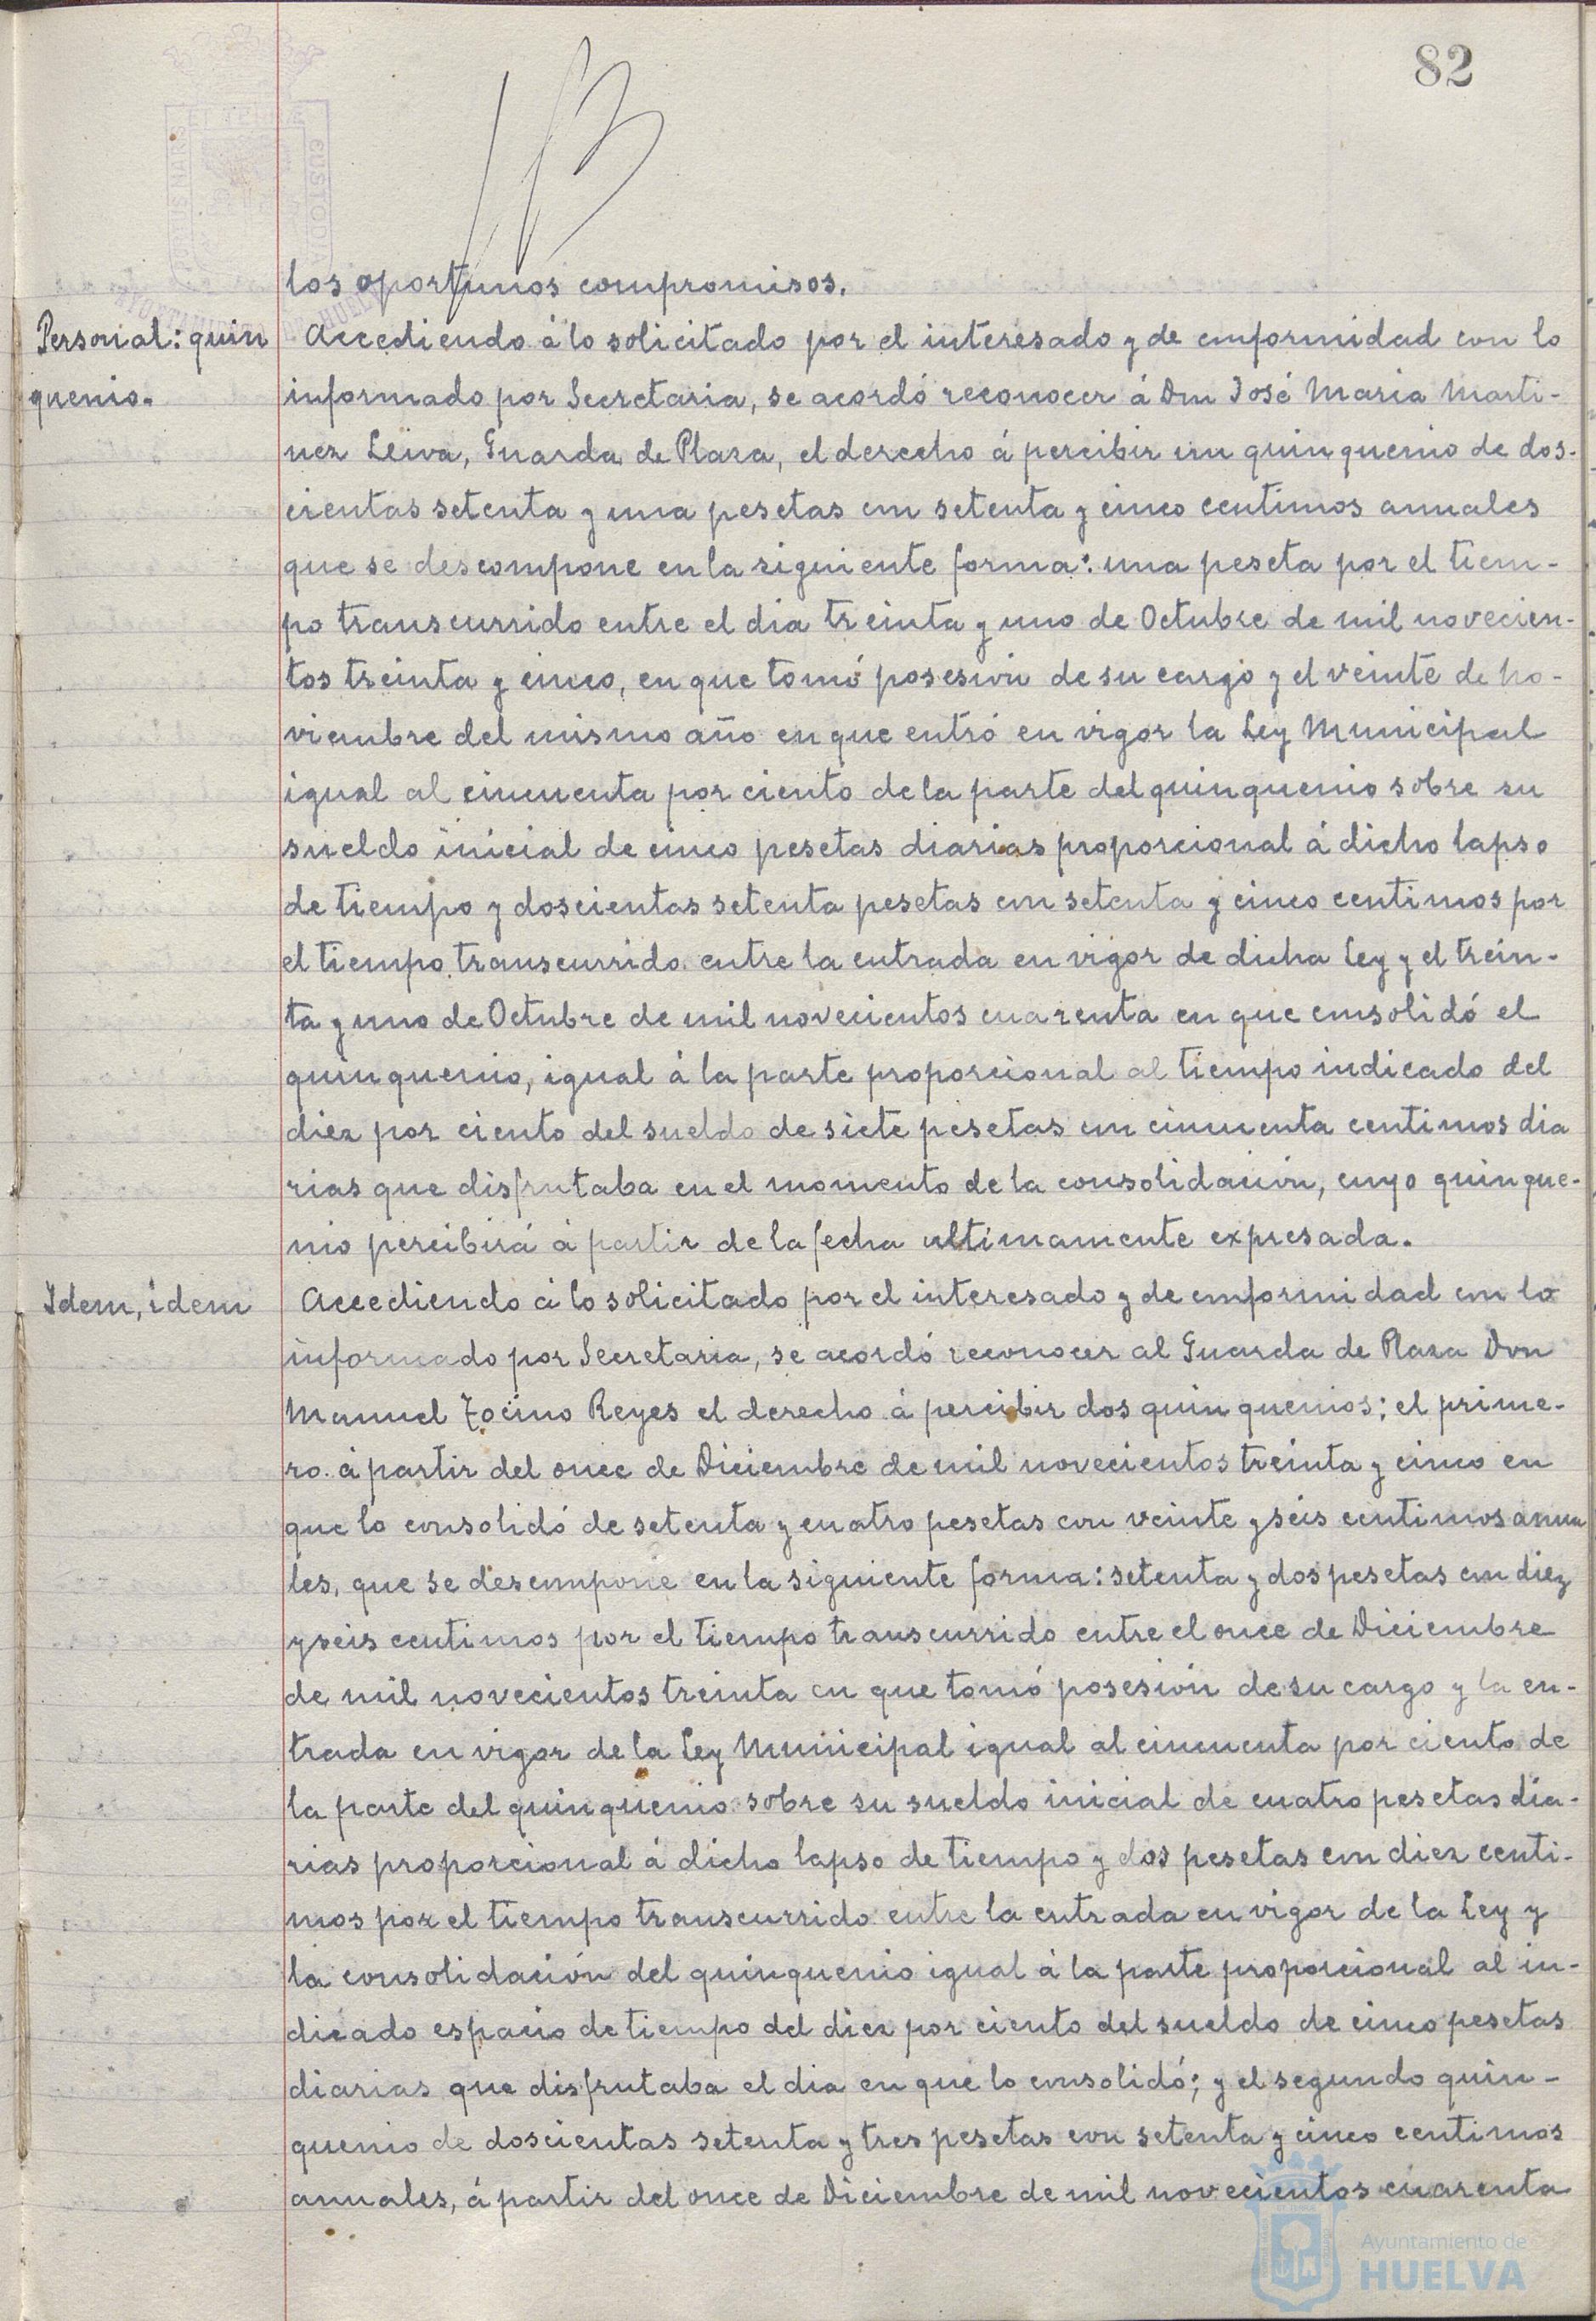 82
los oportunos compromisos.
Personal: quin
quenio.
Accediendo á lo solicitado por el interesado y de conformidad con lo
informado por Secretaria, se acordó reconocer á Don José Maria Marti-
nez Leiva, Guarda de Plaza, el derecho á percibir un quinquenio de dos-
cientas setenta y una pesetas con setenta y cinco centimos anuales
que se descompone en la siguiente forma: una peseta por el tiem-
po transcurrido entre el dia treinta y uno de Octubre de mil novecien-
tos treinta y cinco, en que tomó posesión de su cargo y el veinte de No-
viembre del mismo año en que entró en vigor la Ley Municipal
igual al cincuenta por ciento de la parte del quinquenio sobre su
sueldo inicial de cinco pesetas diarias proporcional á dicho lapso
de tiempo y doscientas setenta pesetas con setenta y cinco centimos por
el tiempo transcurrido entre la entrada en vigor de dicha Ley y el trein-
ta y uno de Octubre de mil novecientos cuarenta en que consolidó el
quinquenio, igual á la parte proporcional al tiempo indicado del
diez por ciento del sueldo de siete pesetas con cincuenta centimos dia
rias que disfrutaba en el momento de la consolidación, cuyo quinque-
nio percibirá á partir de la fecha ultimamente expresada.
Idem, idem
Accediendo á lo solicitado por el interesado y de conformidad con lo
informado por Secretaria, se acordó reconocer al Guarda de Plaza Don
Manuel Tocino Reyes el derecho á percibir dos quinquenios; el prime-
ro á partir del once de Diciembre de mil novecientos treinta y cinco en
que lo consolidó de setenta y cuatro pesetas con veinte y seis centimos anua
les, que se descompone en la siguiente forma: setenta y dos pesetas con diez
y seis centimos por el tiempo transcurrido entre el once de Diciembre
de mil novecientos treinta en que tomó posesión de su cargo y la en-
trada en vigor de la Ley Municipal igual al cincuenta por ciento de
la parte del quinquenio sobre su sueldo inicial de cuatro pesetas dia-
rias proporcional á dicho lapso de tiempo y dos pesetas con diez centi-
mos por el tiempo transcurrido entre la entrada en vigor de la Ley y
la consolidación del quinquenio igual á la parte proporcional al in-
dicado espacio de tiempo del diez por ciento del sueldo de cinco pesetas
diarias que disfrutaba el dia en que lo consolidó; y el segundo quin-
quenio de doscientas setenta y tres pesetas con setenta y cinco centimos
anuales, á partir del once de Diciembre de mil novecientos cuarenta
Ayuntamiento de
HUELVA